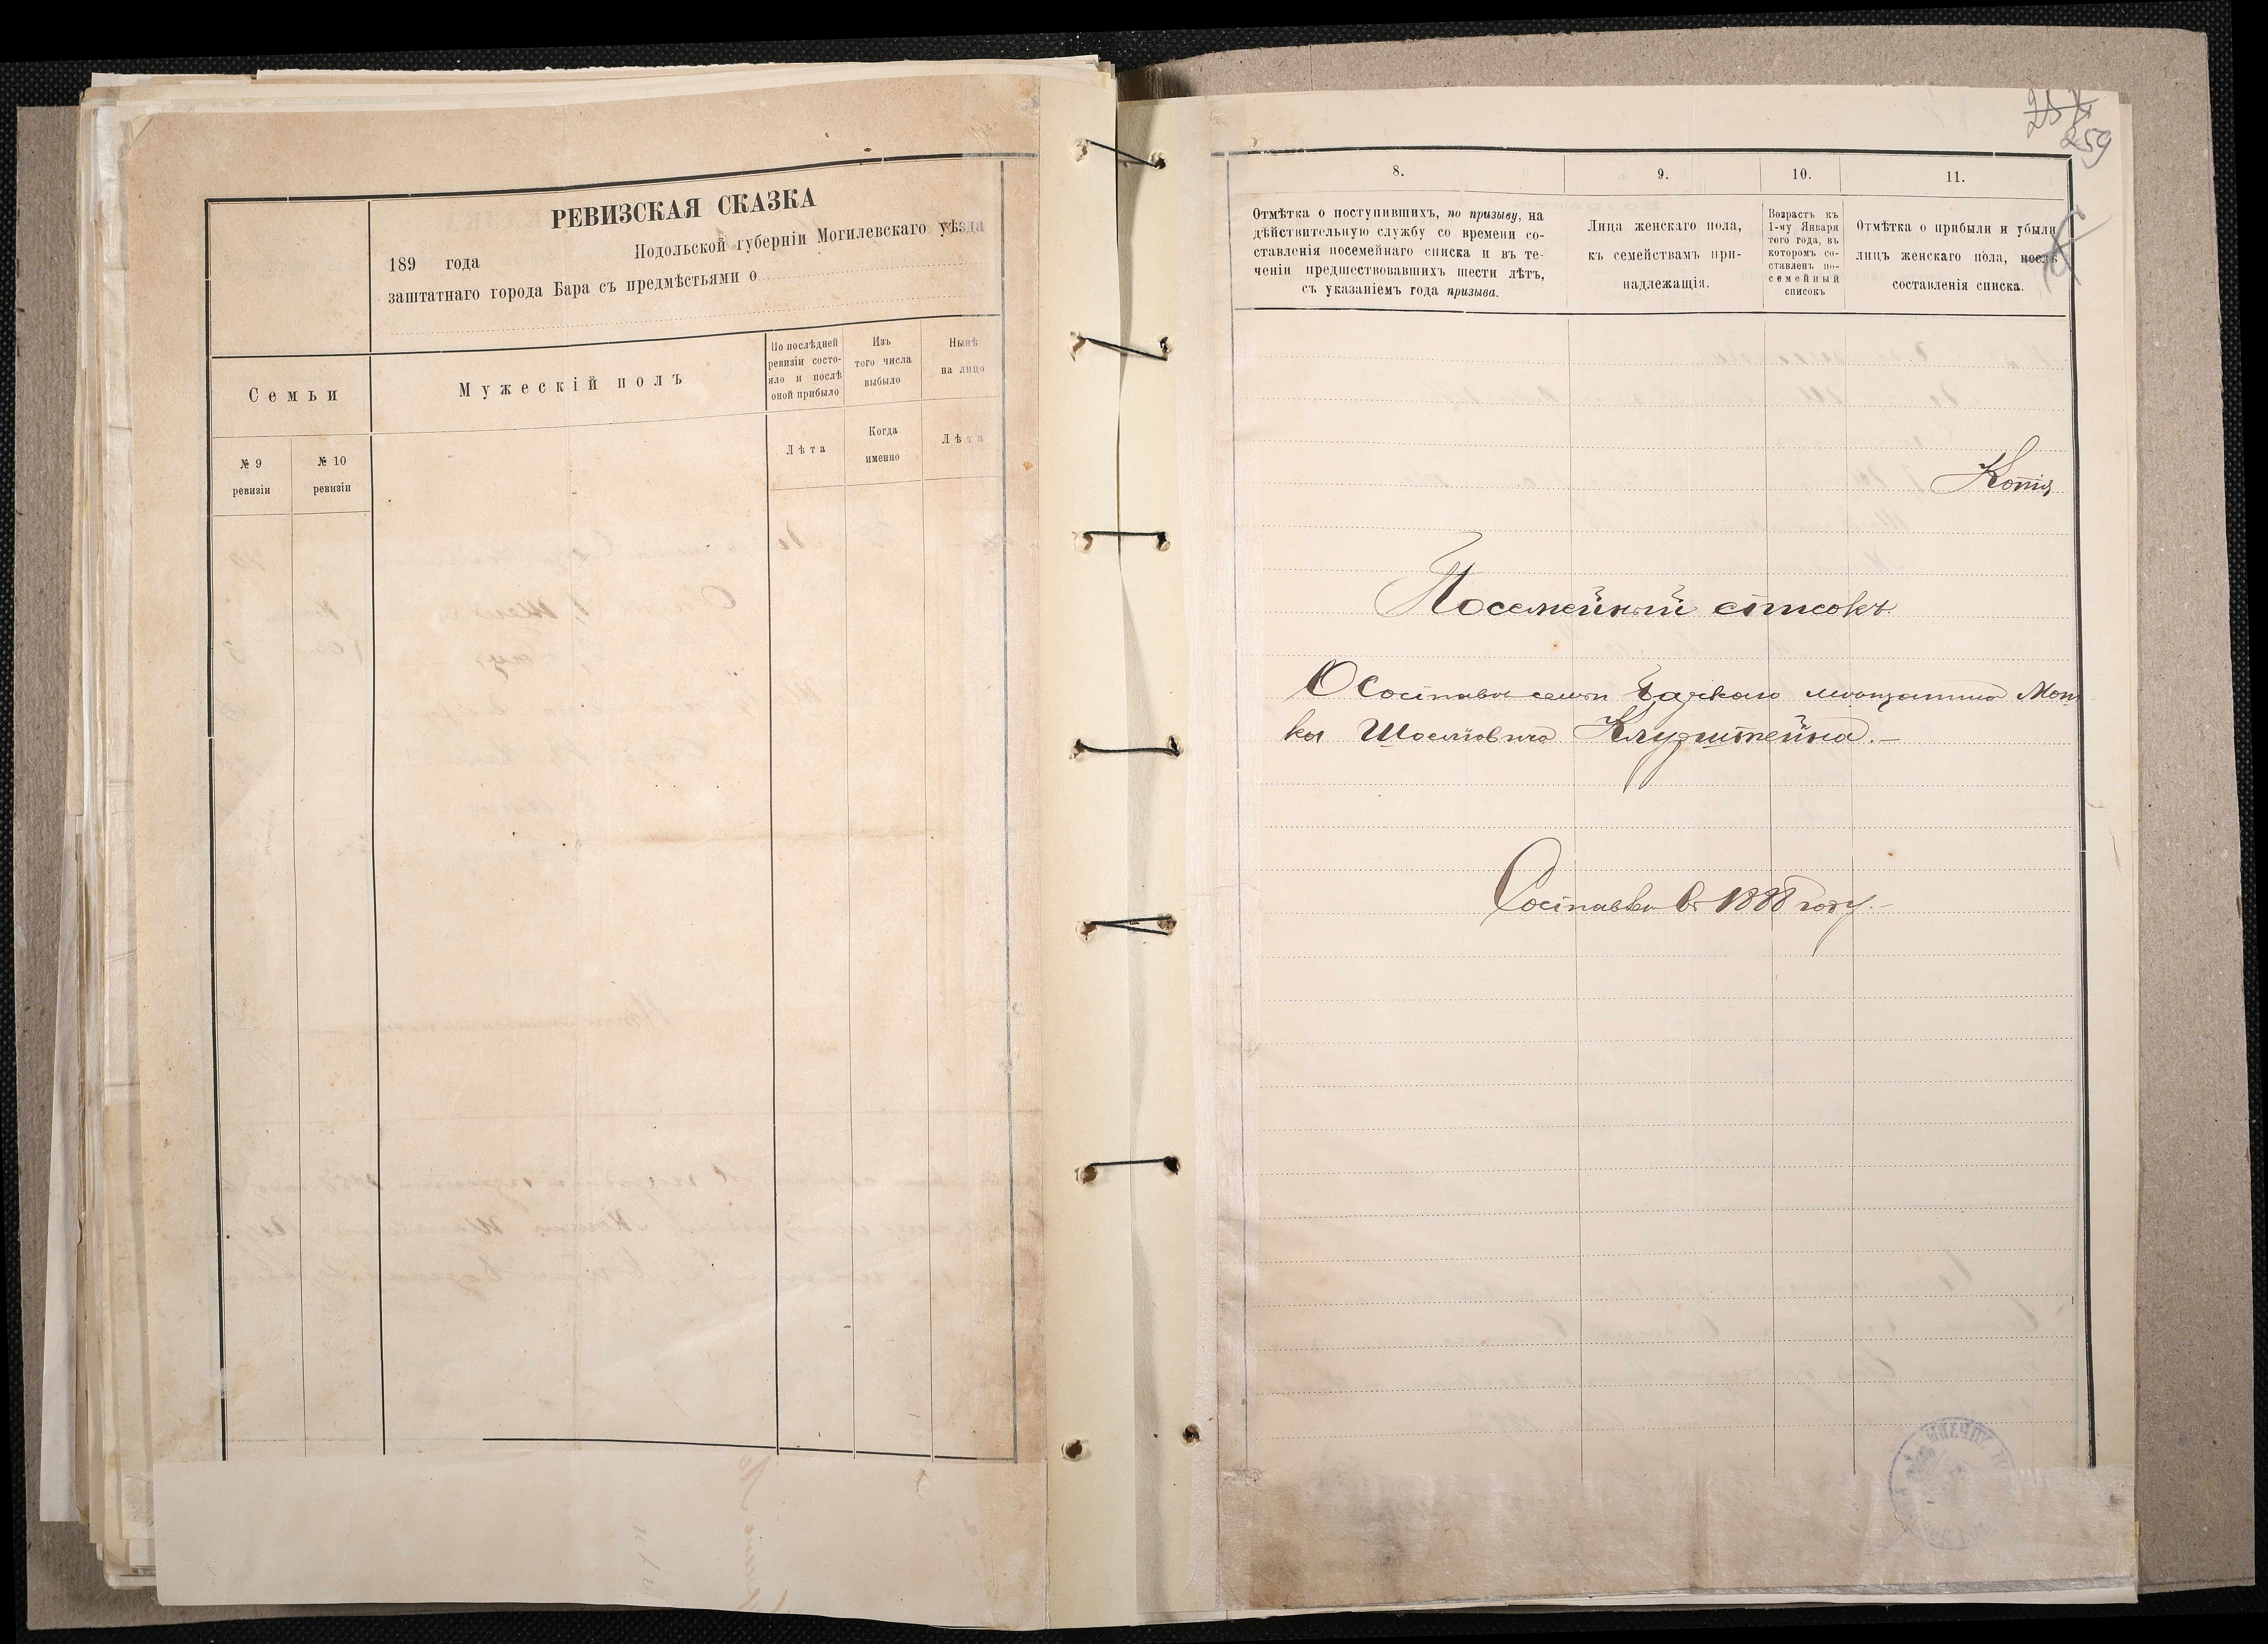 РЕВИЗСКАЯ СКАЗКА
189 года Подольской губерніи Могилевскаго уѣзда
заштатнаго города Бара съ предмѣстьями о
Семьи
Мужескій полъ
По послѣдней
ревизіи состо-
яло и послѣ
оной прибыло
Изъ
того числа
выбыло
Нынѣ
на лицо
№ 9
ревизіи
№ 10
ревизіи
Лѣта
Когда
именно
Лѣта
259
8.
9.
10.
11.
Отмѣтка о поступившихъ, по призыву, на
дѣйствительную службу со времени со-
ставленія посемейнаго списка и въ те-
ченіи предшествовавшихъ шести лѣтъ,
съ указаніемъ года призыва.
Лица женскаго пола,
къ семействамъ при-
надлежащія.
Возрастъ къ
1-му Января
того года, въ
которомъ со-
ставленъ по-
семейный
списокъ
Отмѣтка о прибыли и убыли
лицъ женскаго пола, послѣ
составленія списка.
Копія
Посемейный списокъ
О составѣ семьи Барскаго мѣщанина Мош
ка Шоелиовича Клузштейна.—
Составленъ въ 1888 году.—